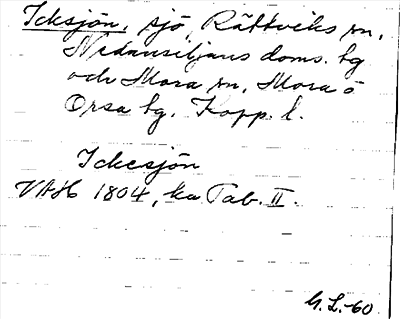 Icksjön, sjö, Rättviks sn,
Nedansiljans doms. hg
och Mora sn, Mora o
Orsa hg, Kopp. l.
Ickesjön
VAH 1804, ka Tab. II.
G. L. -60